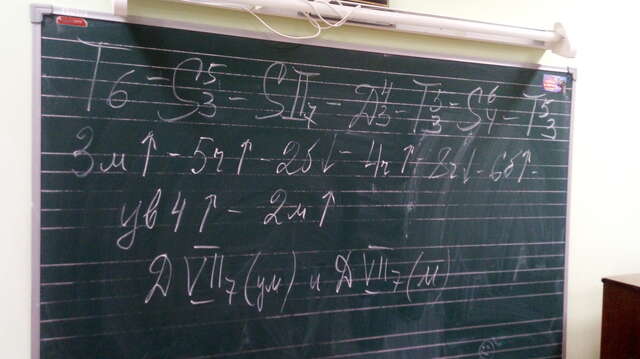 T6 – S53 – SII7 – Д43 – T53 – S64 – T53
3м↑ – 5ч↑ – 2б↓ – 4ч↑ – 8ч↓ – 6б↑ –
ув4↑ – 2м↑
Д VII7 (ум) и Д VII7 (м)